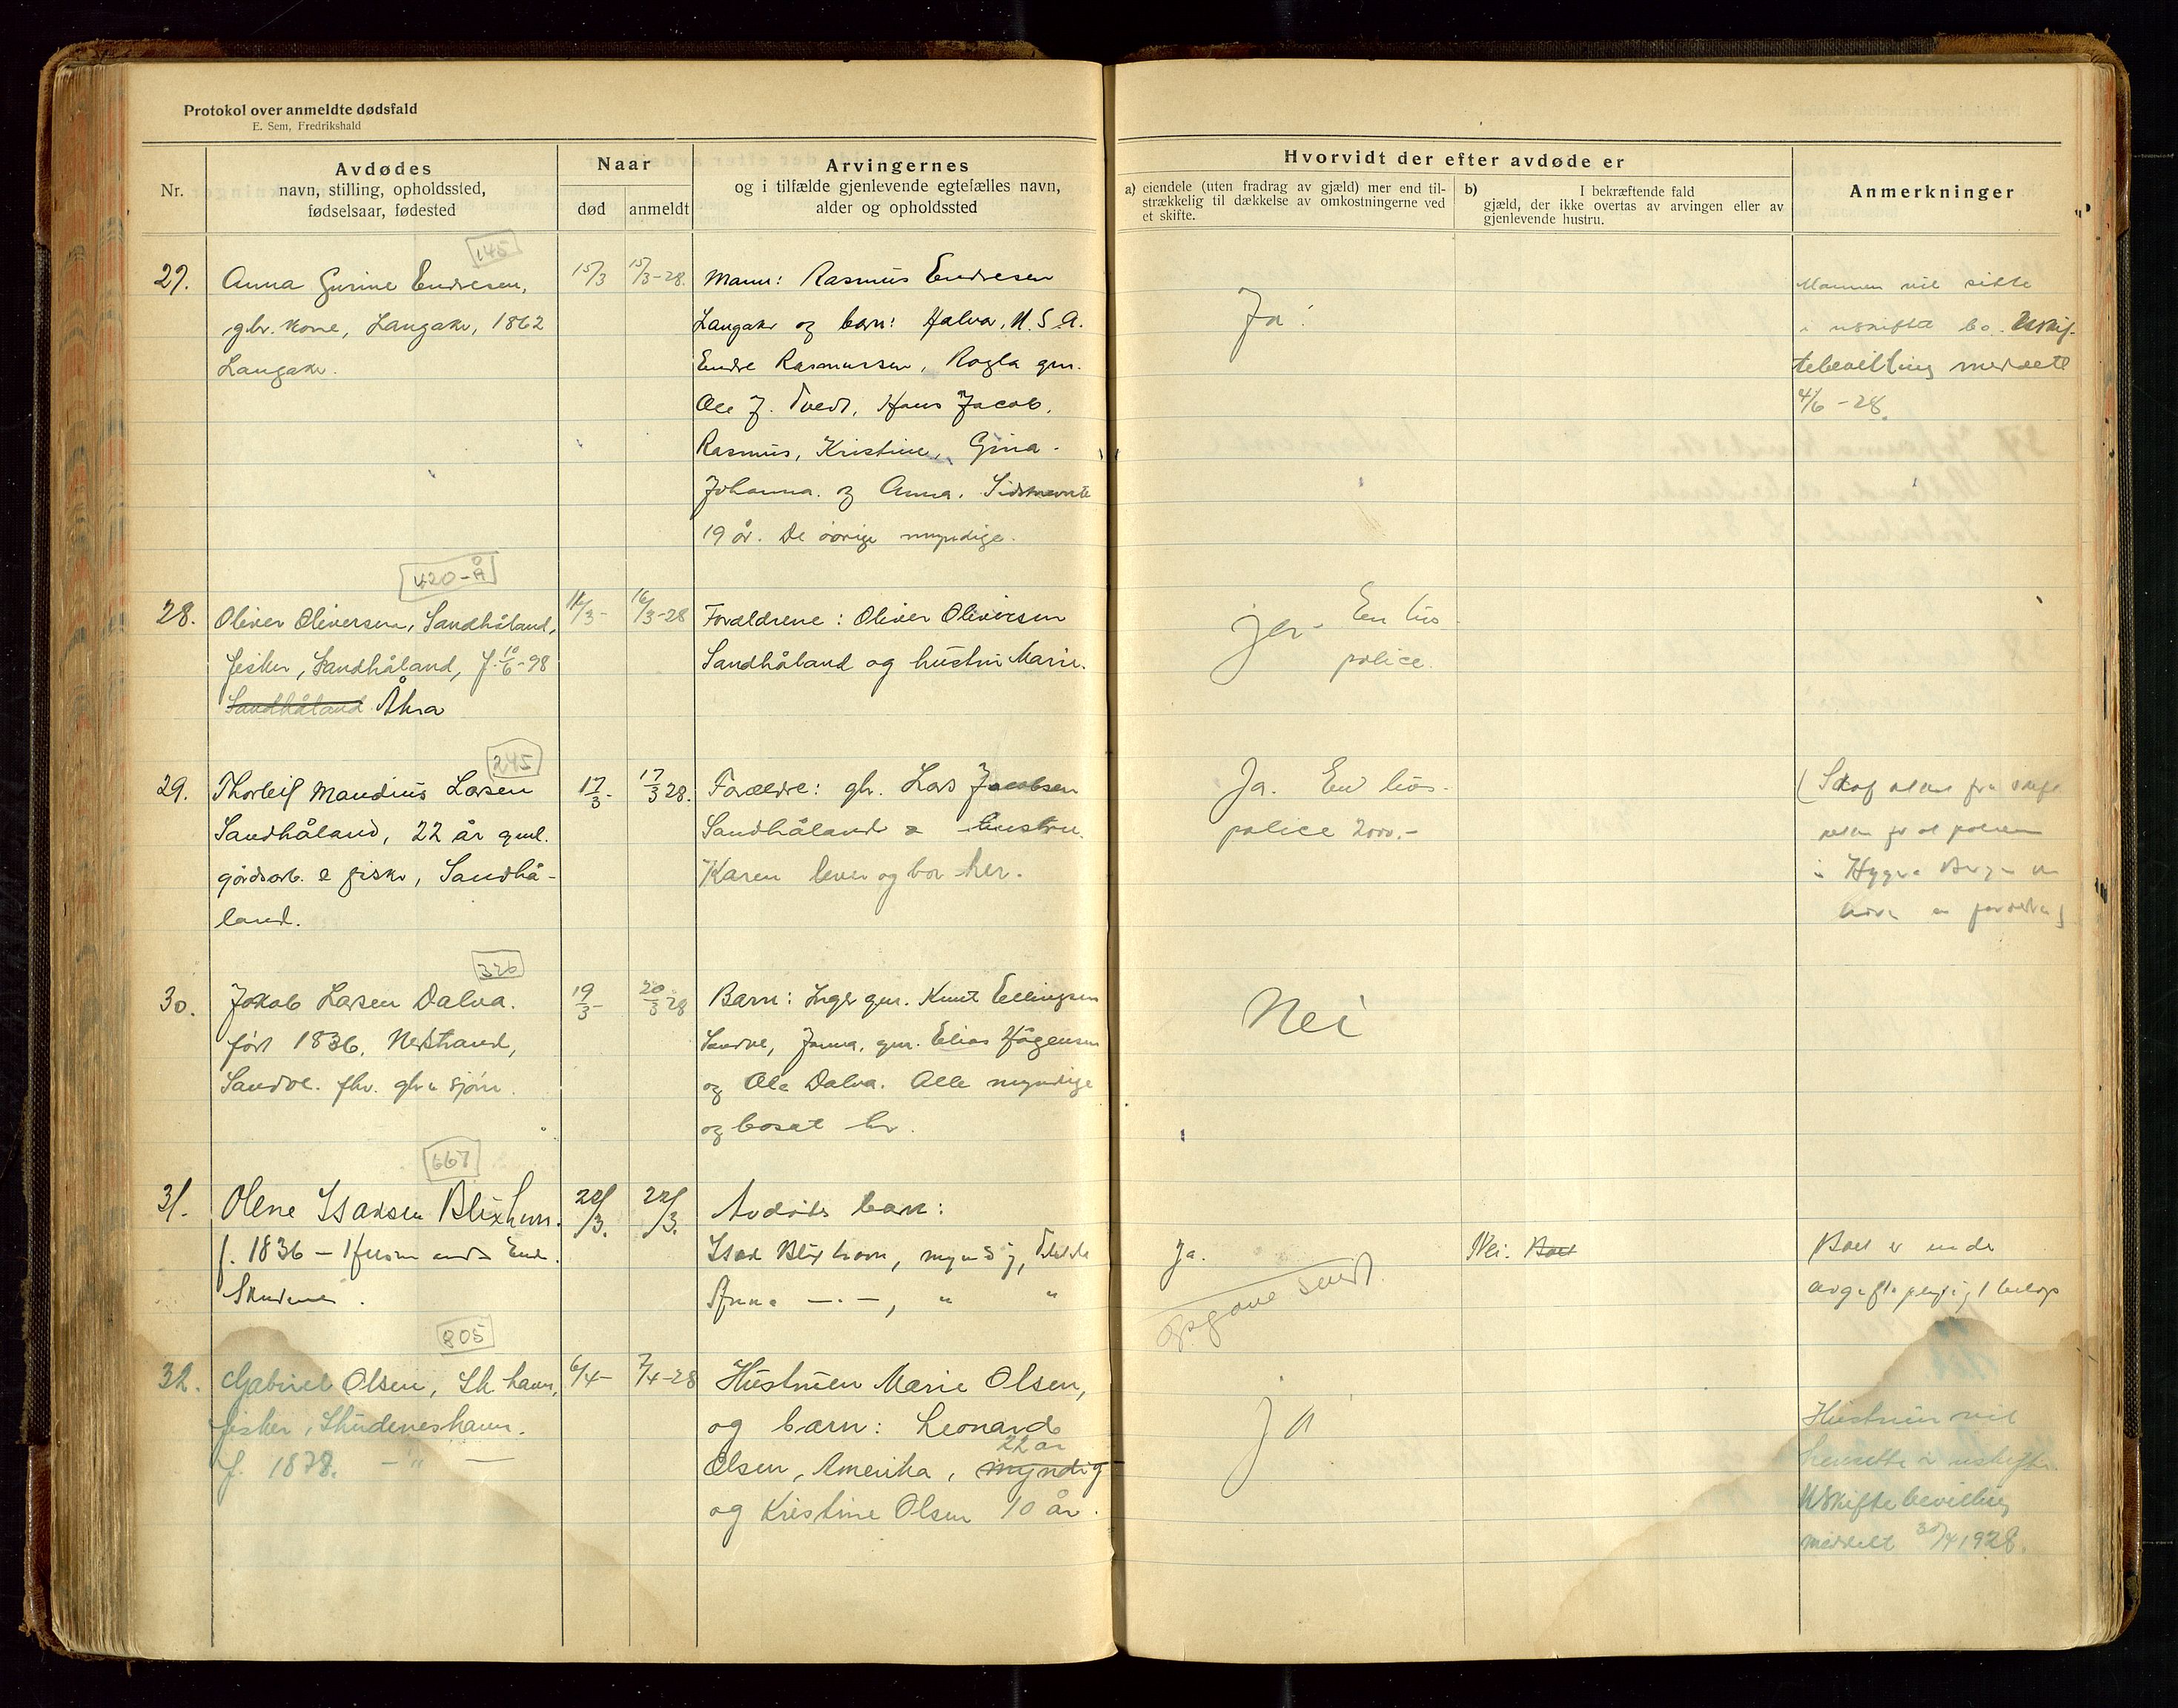 Protokol over anmeldte dødsfald
E. Sem, Fredrikshald
Nr.
Avdødes
navn, stilling, opholdssted,
fødselsaar, fødested
Naar
død
anmeldt
Arvingernes
og i tilfælde gjenlevende egtefælles navn,
alder og opholdssted
Hvorvidt der efter avdøde er
a) eiendele (uten fradrag av gjæld) mer end til-
strækkelig til dækkelse av omkostningerne ved
et skifte.
b) I bekræftende fald
gjæld, der ikke overtas av arvingen eller av
gjenlevende hustru.
Anmerkninger
145
27.
Anna Gurine Endresen,
gbr. kone, Langaker, 1862
Langaker.
15/3
15/3-28.
Mann: Rasmus Endresen
Langaker og barn: Halvor, U.S.A.
Endre Rasmussen, Ragla gm.
Ole J. Tvedt, Hans Jacob,
Rasmus, Kristine, Gina
Johanna. og Anna. Sidstnevnte
19 år. De øvrige myndige.
Ja.
Mannen vil sitte
i uskiftet bo. Uskif-
tebevilling meddelt
4/6-28.
420-Å
28.
Oliver Oliversen, Sandhåland,
fisker, Sandhåland, f. 10/6-98
Sandhåland Åkra
16/3-28
Forældrene: Oliver Oliversen
Sandhåland og hustru Marie.
ja- En livs
police.
245
29.
Thorleif Mandius Larsen
Sandhåland, 22 år gml.
gårdsarb. & fisker, Sandhå-
land.
17/3-
17/3 28.
Forældre: gbr. Lars Jacobsen
Sandhåland & hustru
Karen lever og bor her.
Ja. En livs-
police 2000.-
326
30.
Jakob Larsen Dalva.
født 1836, Nedstrand,
Sandve. fhv. gbr & sjøm.
19/3-
20/3 28
Barn: Inger gm. Knut Ellingsen
Sandve, Janna, gm. Elias Hågensen
og Ole Dalva. Alle myndige
og bosat her.
Nei
667
31.
Olene Isaksen Blixhavn.
f. 1836 - Husm enke
Skudenes.
22/3.
22/3.
Avdødes barn:
Isak Blixhavn, myndig,
Anna -.-, " "
Ja.
Opgave sendt.
Nei. Boet
Boet er under
avgiftspligtigt beløp
805
32.
Gabriel Olsen, Sk havn,
fisker, Skudeneshavn.
f. 1878. -"-
6/4-
7/4-28
Hustruen Marie Olsen,
og barn: Leonard
22 år
Olsen, Amerika, myndig
og Kristine Olsen 10 år.
Ja
Hustruen vil
hensitte i uskifte.
Uskiftebevilling
meddelt 30/4 1928.